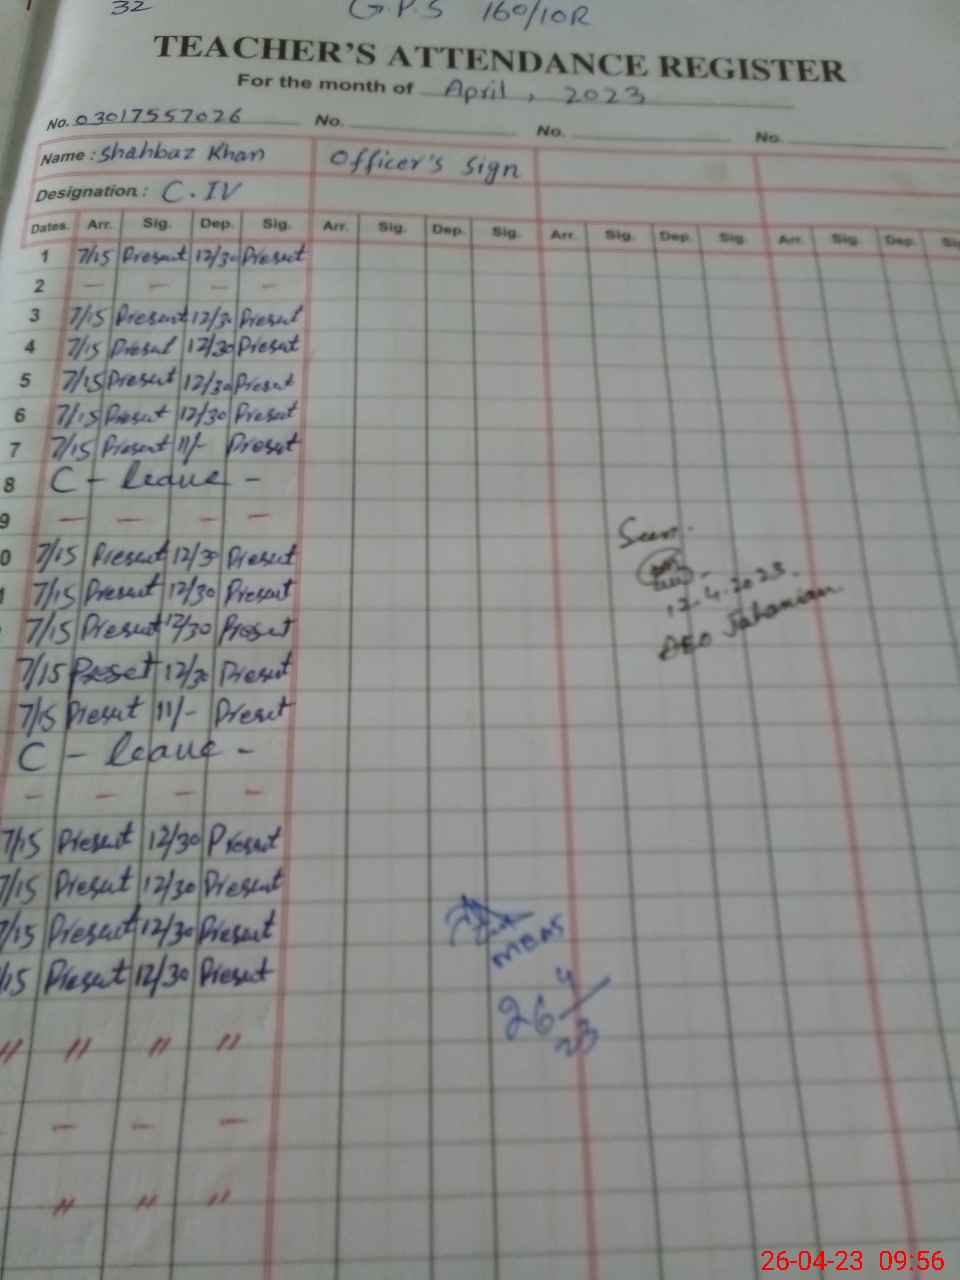 32
G.P.S 160/10R
TEACHER'S ATTENDANCE REGISTER
For the month of April, 2023
No. 03017557026 No. No. No.
Name : Shahbaz Khan Officer's Sign
Designation : C.IV
Dates. Arr. Sig. Dep. Sig. Arr. Sig. Dep. Sig. Arr. Sig. Dep. Sig. Arr. Sig. Dep. Si
1 7/15 Present 12/30 Present
2 — — — —
3 7/15 Present 12/30 Present
4 7/15 Present 12/30 Present
5 7/15 Present 12/30 Present
6 7/15 Present 12/30 Present
7 7/15 Present 11/- Present
8 C - leave -
9 — — — —
0 7/15 Present 12/30 Present
7/15 Present 12/30 Present
7/15 Present 12/30 Preset
7/15 Preset 12/30 Present
7/15 Present 11/- Present
C - leave -
— — — —
7/15 Present 12/30 Present
7/15 Present 12/30 Present
7/15 Present 12/30 Present
/15 Present 12/30 Present
" " " "
- — — —
" " "
Seen.
12.4.2023.
AEO Jahanian
MEAS
26 4/23
26-04-23 09:56